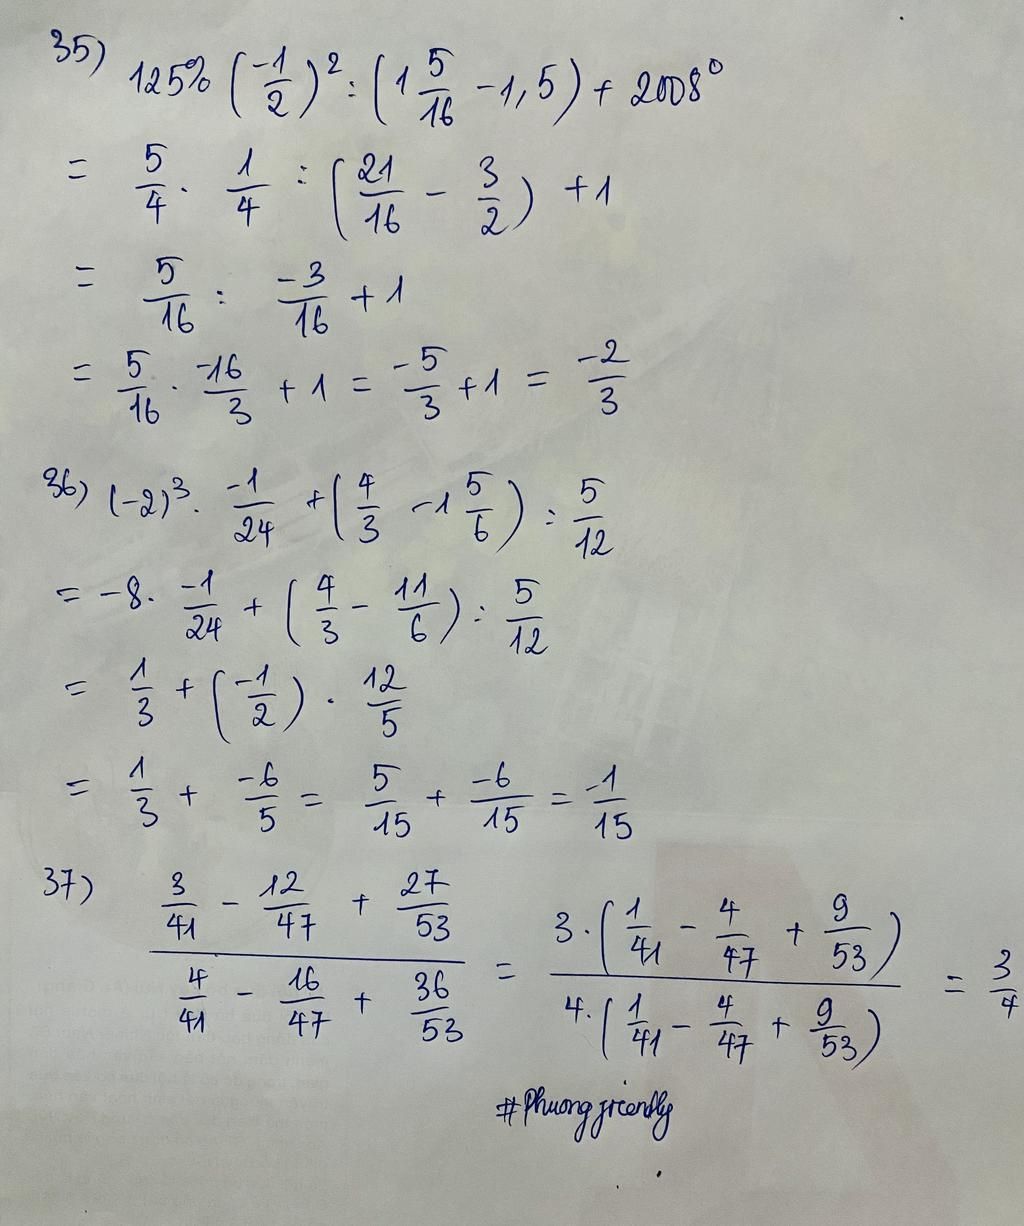 35) 125% (-1/2)² : (1 5/16 - 1,5) + 2008⁰
= 5/4 . 1/4 : (21/16 - 3/2) + 1
= 5/16 : -3/16 + 1
= 5/16 . -16/3 + 1 = -5/3 + 1 = -2/3
36) (-2)³ . -1/24 + (4/3 - 1 5/6) : 5/12
= -8 . -1/24 + (4/3 - 11/6) : 5/12
= 1/3 + (-1/2) . 12/5
= 1/3 + -6/5 = 5/15 + -6/15 = -1/15
37) (3/41 - 12/47 + 27/53)/(4/41 - 16/47 + 36/53) = 3.(1/41 - 4/47 + 9/53)/4.(1/41 - 4/47 + 9/53) = 3/4
#Phuongfriendly